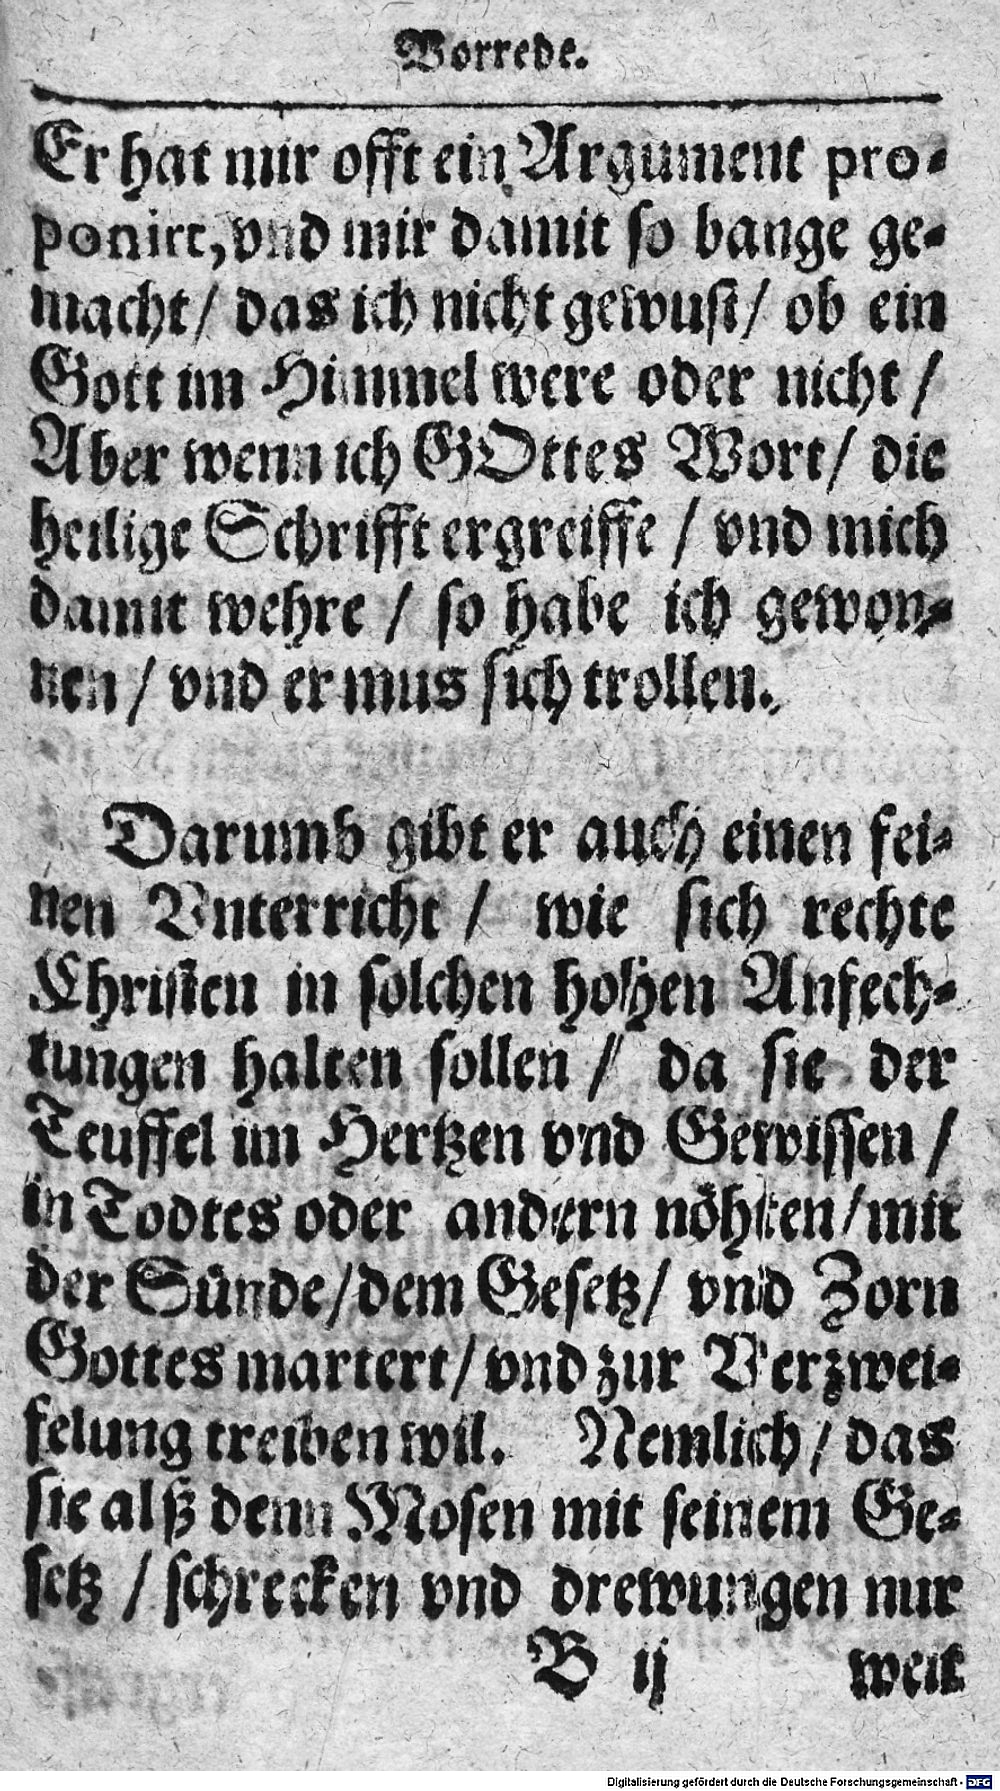 Vorrede.
Er hat mir offt ein Argument pro-
ponirt, vnd mir damit so bange ge-
macht/ das ich nicht gewust/ ob ein
Gott im Himmel were oder nicht/
Aber wenn ich GOttes Wort/ die
heilige Schrifft ergreiffe/ vnd mich
damit wehre/ so habe ich gewon-
nen/ vnd er mus sich trollen.
Darumb gibt er auch einen fei-
nen Vnterricht/ wie sich rechte
Christen in solchen hohen Anfech-
tungen halten sollen/ da sie der
Teuffel im Hertzen vnd Gewissen/
in Todtes oder andern nöhten/ mit
der Sünde/ dem Gesetz/ vnd Zorn
Gottes martert/ vnd zur Verzwei-
felung treiben wil. Nemlich/ das
sie alß denn Mosen mit seinem Ge-
setz/ schrecken vnd drewungen nur
B ij weit
Digitalisierung gefördert durch die Deutsche Forschungsgemeinschaft - DFG